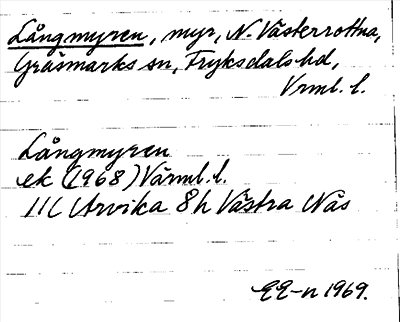 Långmyren, myr, N. Västerrottna,
Gräsmarks sn, Fryksdals hd,
Vrml. l.
Långmyren
ek (1968) Värml. l.
11C Arvika 8h Västra Näs
EE-n 1969.